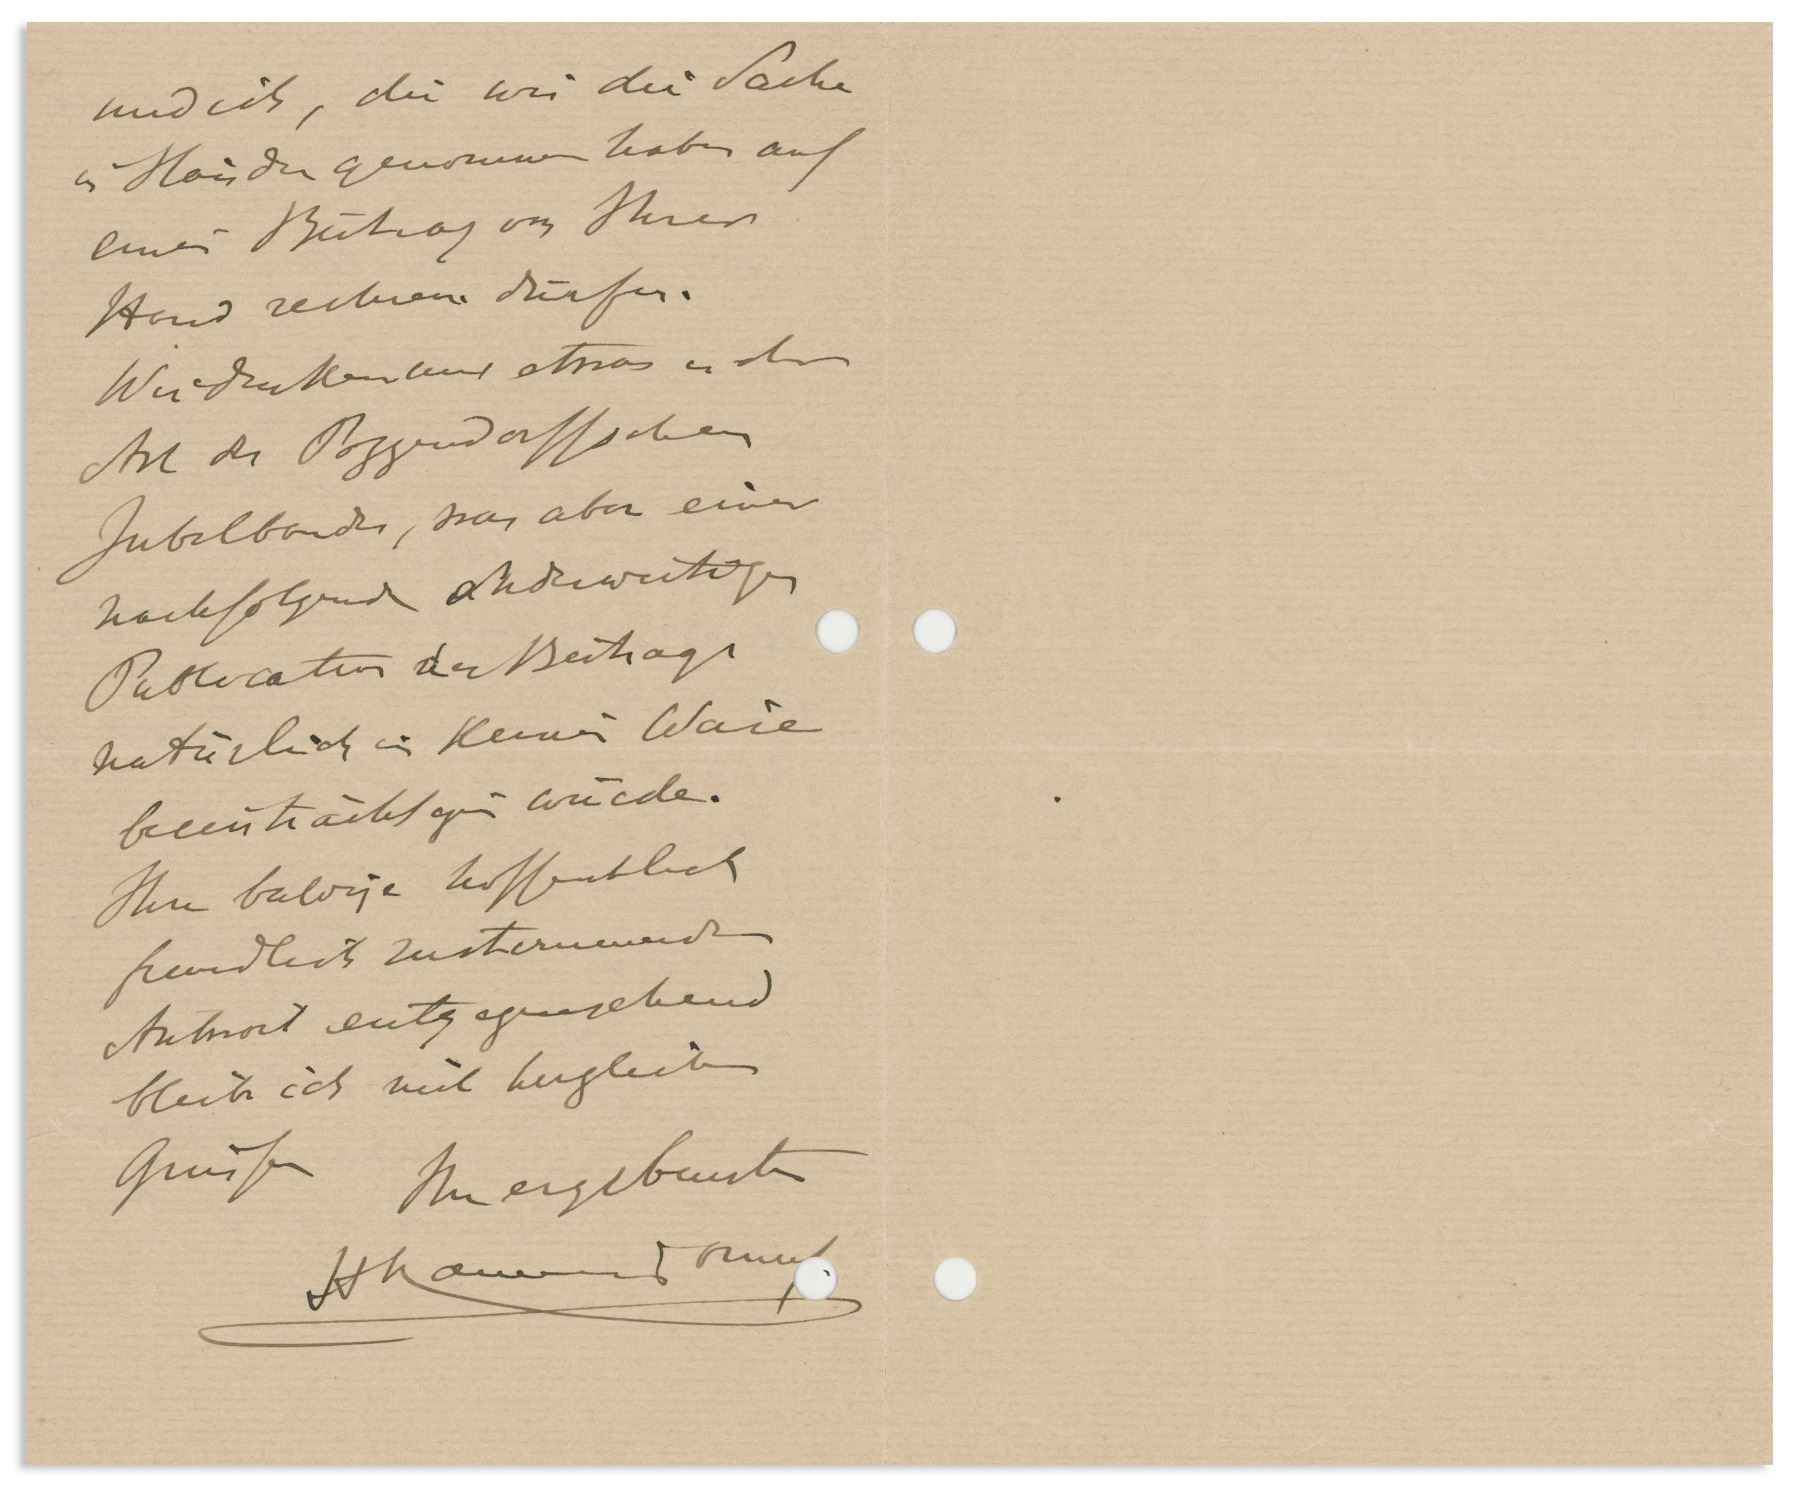 und ich, die wir die Sache
in Händen genommen haben auf
einen Beitrag von Ihrer
Hand rechnen dürfen.
Wir denken uns etwas in der
Art des Poggendorffschen
Jubelbandes, was aber einer
nachfolgenden anderweitigen
Publication der Beiträge
natürlich in keiner Waise
beeinträchtigen würde.
Ihre baldige hoffentlich
freundlich zustimmende
Antwort entgegensehend
bleibe ich mit herzlichen
Grüssen Ihr ergebenster
H Kamerlingh Onnes